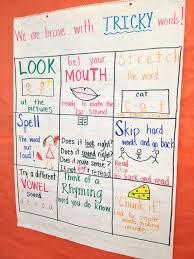 We are brave with TRICKY words!
LOOK
at the
pictures
Get your
MOUTH
ready to make the
1st sound
Stretch
the word
cat
c a t
Spell
the word
out
loud
Does it look right?
Does it sound right?
Does it make sense?
back and reread
Skip hard
words and
go back
Read
Skip
go back and read
Try a different
VOWEL
sound
a e i o u
Think of a
Rhyming
word you do know
Chunk it!
Look for
smaller words